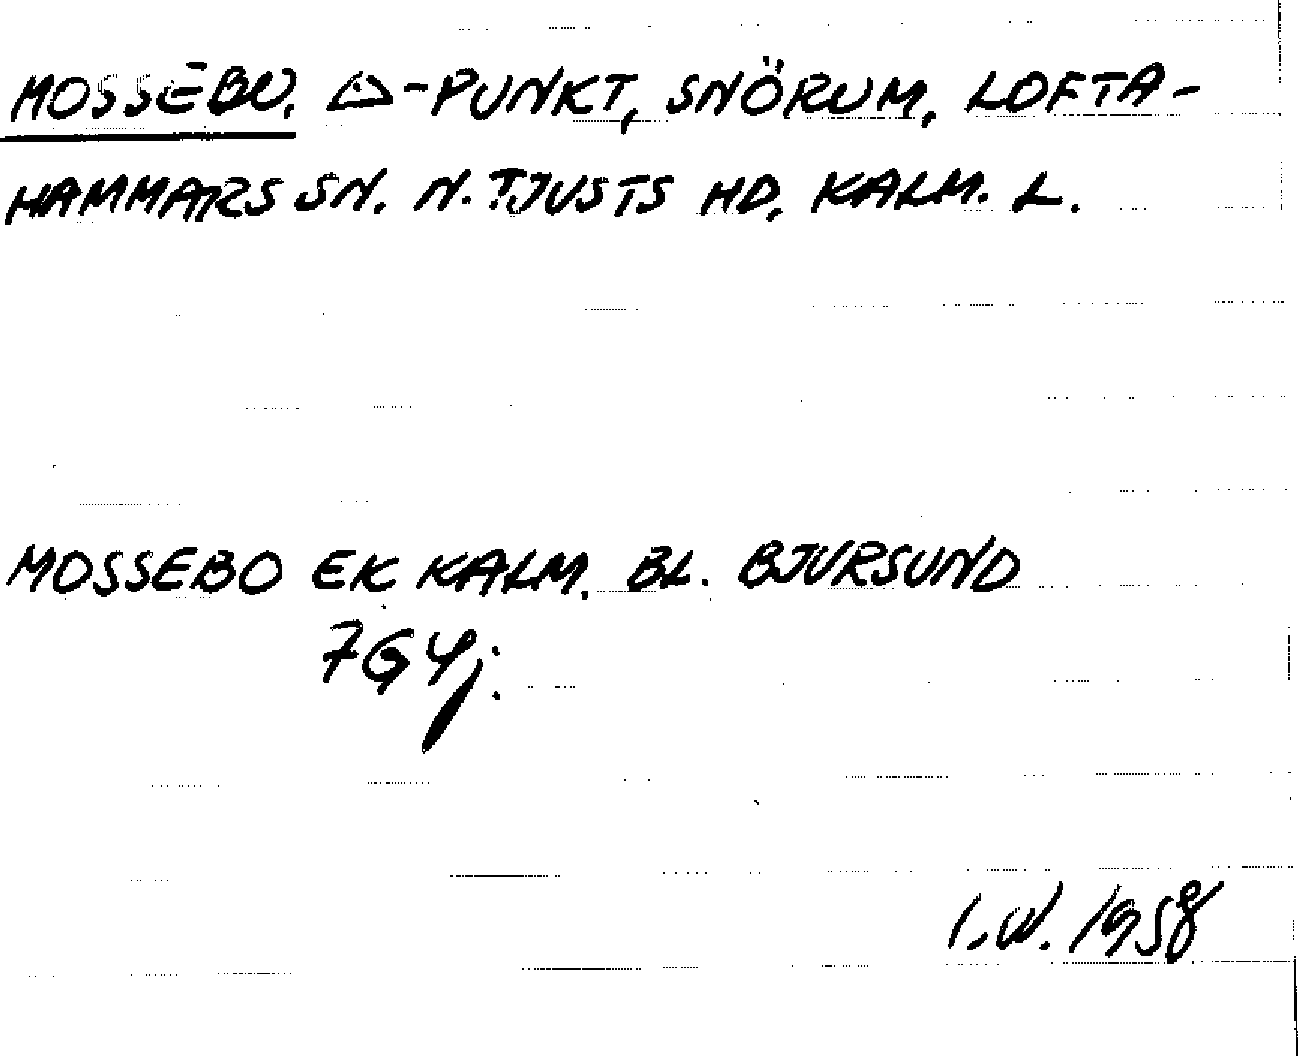 MOSSEBO. △-PUNKT, SNÖRUM, LOFTA-
HAMMARS SN. N. TJUSTS HD. KALM. L.
MOSSEBO EK KALM. BL. BJURSUND
7G4j:
I.W. 1958